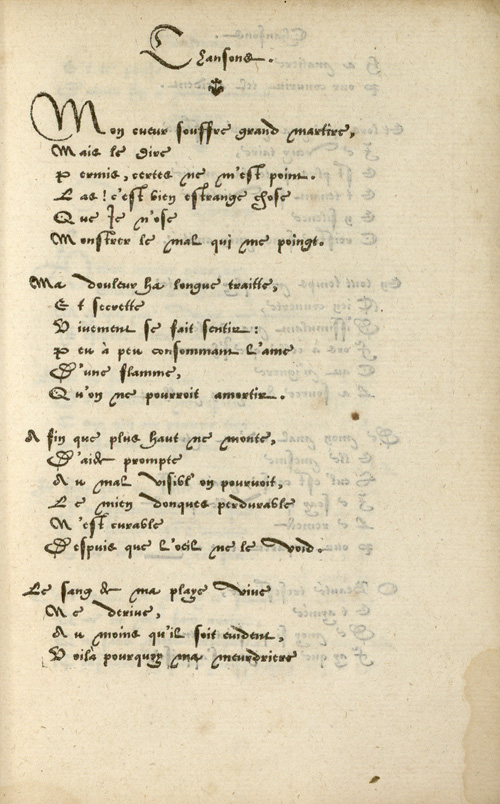 Chansons.
Mon cueur souffre grand martire,
Mais le dire
Permis, certes ne m'est point.
Las! c'est bien estrange chose
Que Je n'ose
Monstrer le mal qui me poingt.
Ma douleur ha longue traitte,
Et secrette
Vivement se fait sentir:
Peu à peu consommant l'ame
D'une flamme,
Qu'on ne pourroit amortir.
Afin que plus haut ne monte,
D'aide prompte
Au mal visibl' on pourvoit,
Le mien donques perdurable
N'est curable
Despuis que l'oeil ne le void.
Le sang de ma playe vive
Ne derive,
Au moins qu'il soit evident,
Voilà pourquoy ma meurdriere